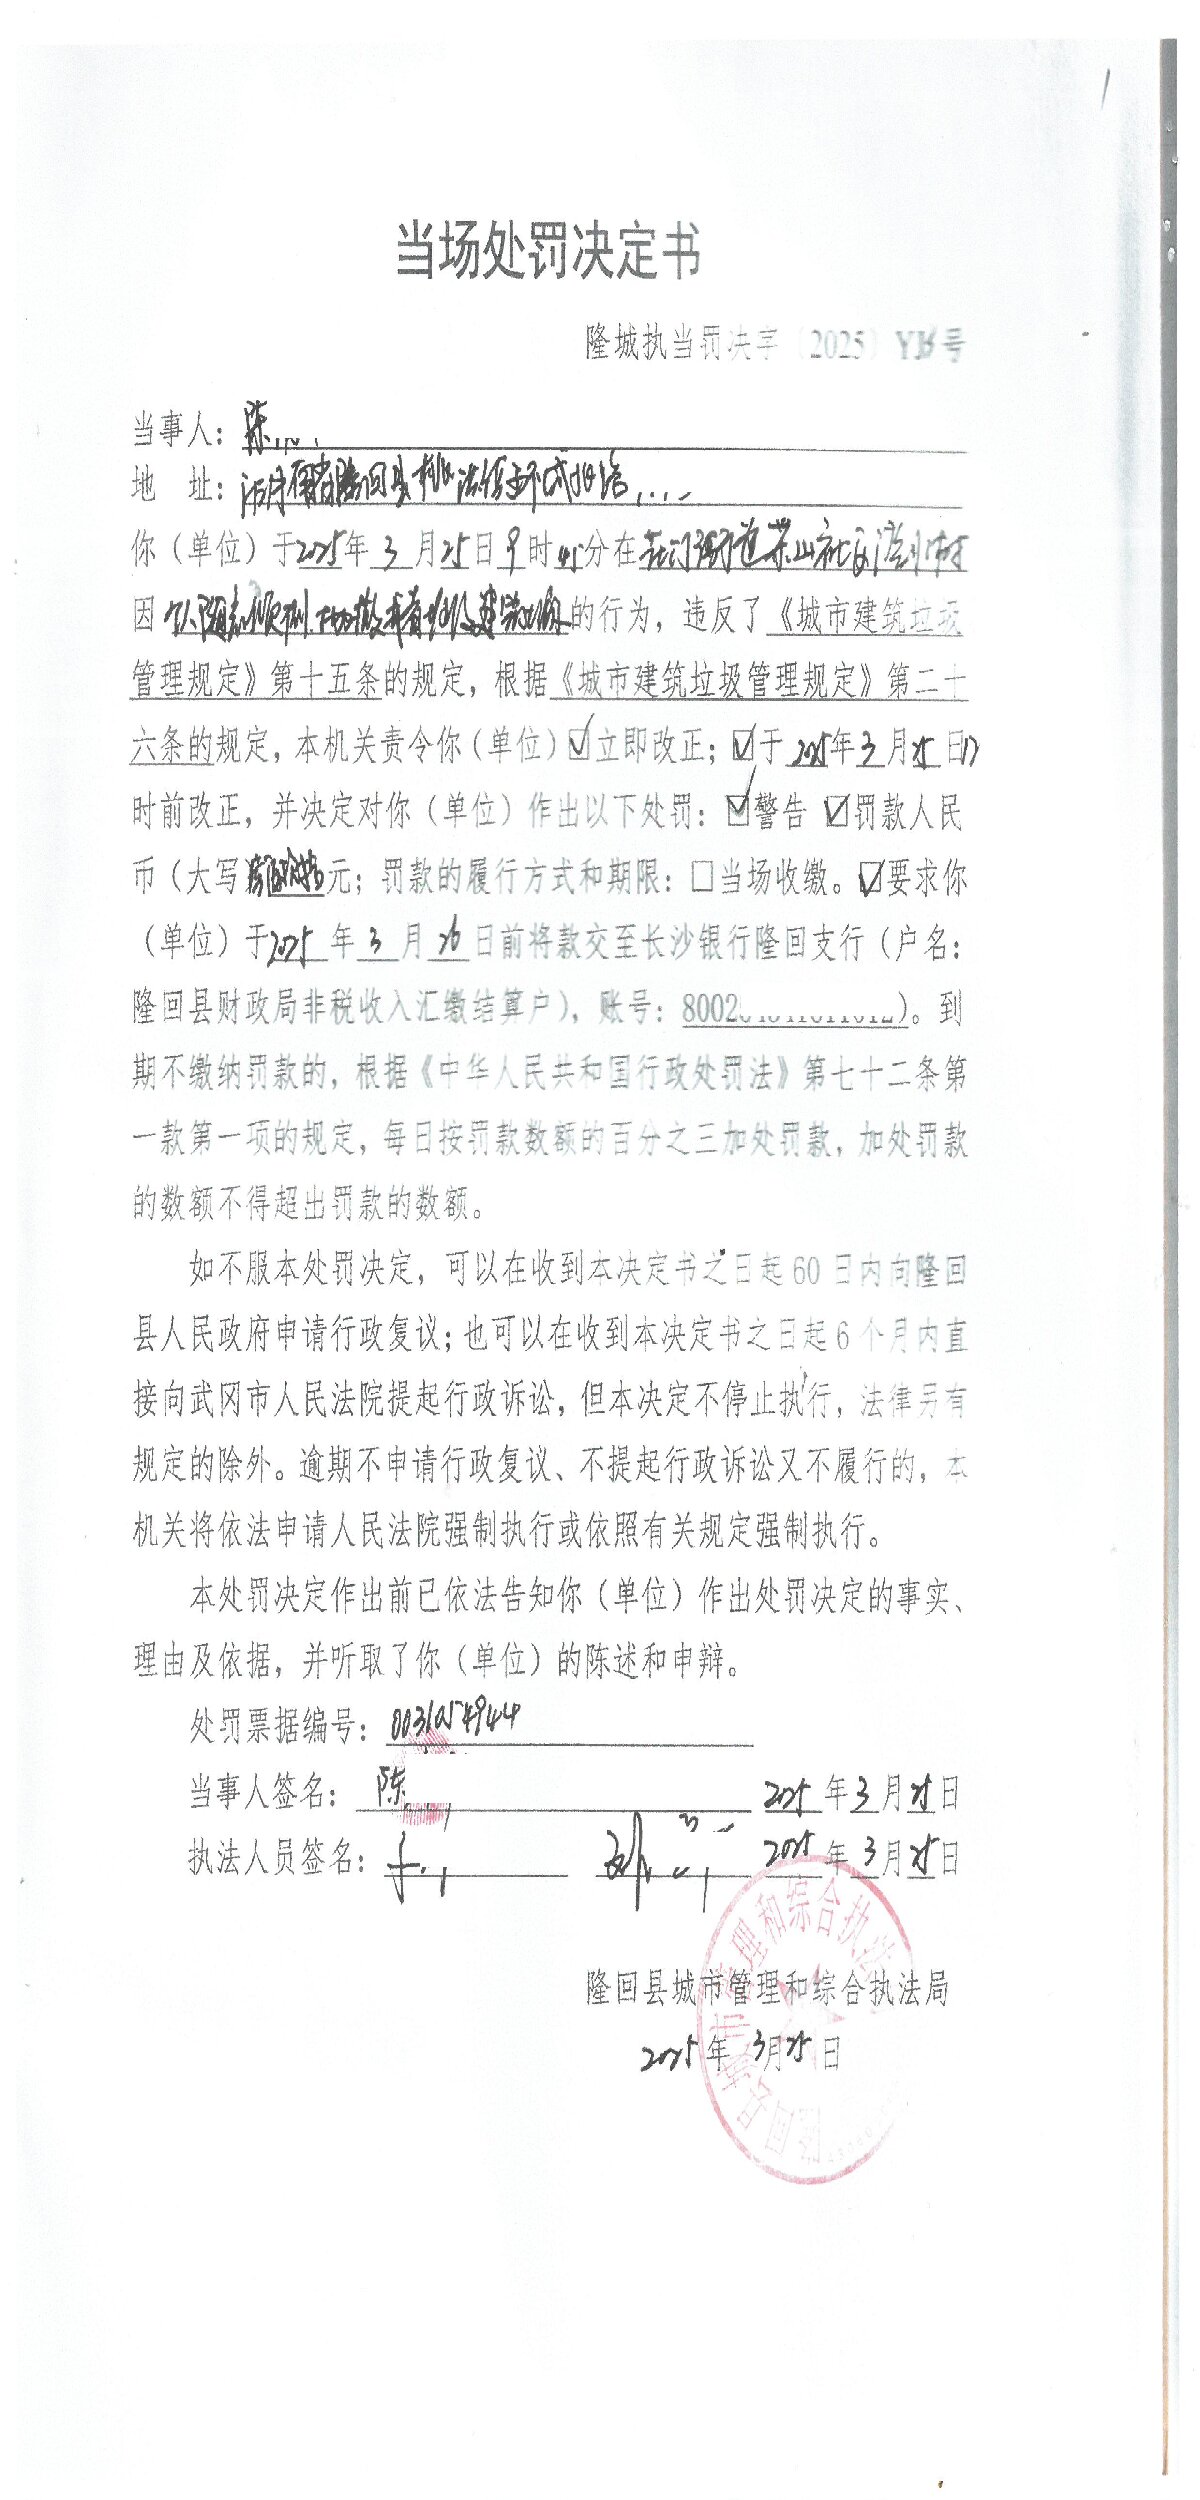 当场处罚决定书
隆城执当罚决字〔2025〕 号
当事人：陈
地 址：
你（单位）于2025年3月25日9时45分在
因 的行为，违反了《城市建筑垃圾
管理规定》第十五条的规定，根据《城市建筑垃圾管理规定》第二十
六条的规定，本机关责令你（单位）☑立即改正；☑于2025年3月25日17
时前改正，并决定对你（单位）作出以下处罚：☑警告 ☑罚款人民
币（大写 元；罚款的履行方式和期限：□当场收缴。☑要求你
（单位）于2025年3月26日前将款交至长沙银行隆回支行（户名：
隆回县财政局非税收入汇缴结算户），账号：8002 ）。到
期不缴纳罚款的，根据《中华人民共和国行政处罚法》第七十二条第
一款第一项的规定，每日按罚款数额的百分之三加处罚款，加处罚款
的数额不得超出罚款的数额。
如不服本处罚决定，可以在收到本决定书之日起60日内向隆回
县人民政府申请行政复议；也可以在收到本决定书之日起6个月内直
接向武冈市人民法院提起行政诉讼，但本决定不停止执行，法律另有
规定的除外。逾期不申请行政复议、不提起行政诉讼又不履行的，本
机关将依法申请人民法院强制执行或依照有关规定强制执行。
本处罚决定作出前已依法告知你（单位）作出处罚决定的事实、
理由及依据，并听取了你（单位）的陈述和申辩。
处罚票据编号：0031054944
当事人签名：陈 2025年3月25日
执法人员签名： 2025年3月25日
隆回县城市管理和综合执法局
2025年3月25日